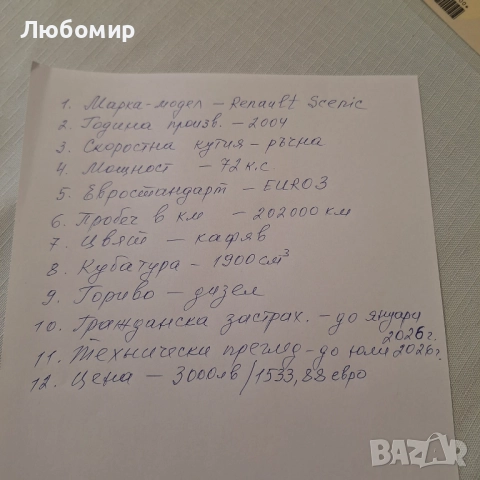 Любомир
1. Марка-модел – Renault Scenic
2. Година произв. – 2004
3. Скоростна кутия – ръчна
4. Мощност – 72 к.с.
5. Евростандарт – EURO3
6. Пробег в км – 202000 км
7. Цвят – кафяв
8. Кубатура – 1900 см³
9. Гориво – дизел
10. Гражданска застрах. – до януари
2026 г.
11. Технически преглед – до юли 2026 г.
12. Цена – 3000 лв / 1533,88 евро
BAZAR